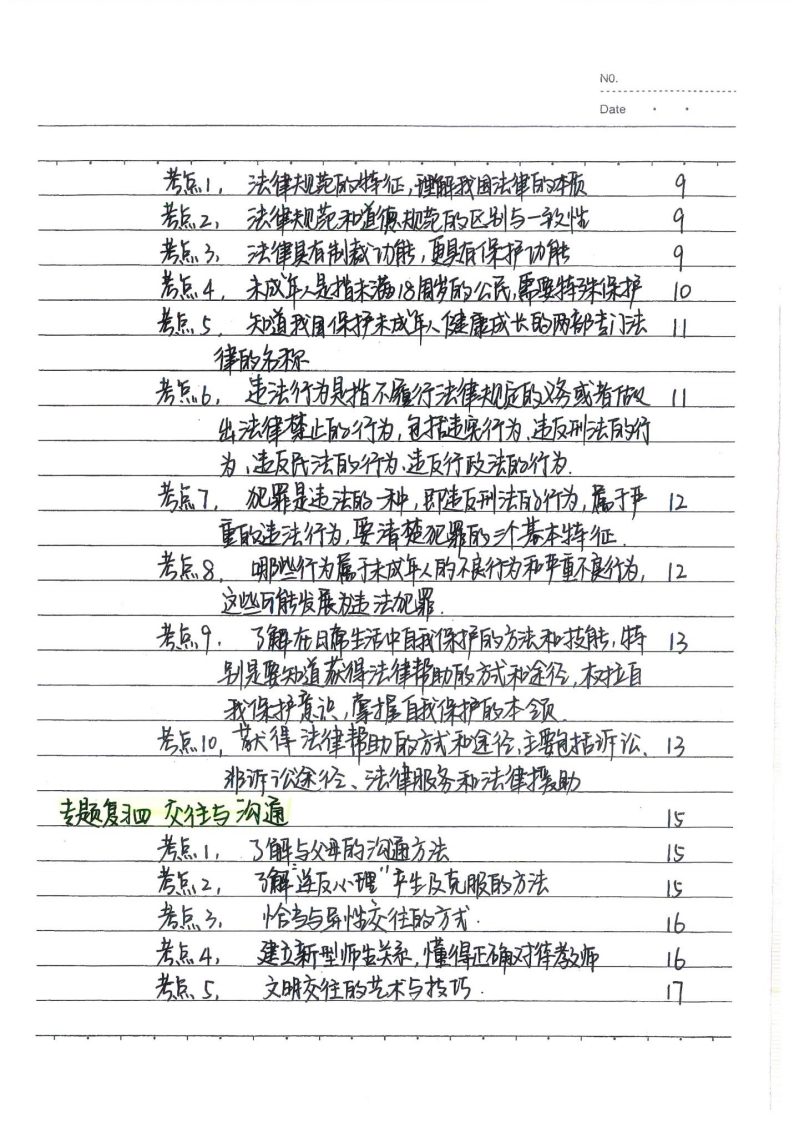 NO.
Date
考点1, 法律规范的特征,理解我国法律的本质 9
考点2, 法律规范和道德规范的区别与一致性 9
考点3, 法律具有制裁功能,更具有保护功能 9
考点4, 未成年人是指未满18周岁的公民,需要特殊保护 10
考点5, 知道我国保护未成年人健康成长的两部专门法 11
律的名称
考点6, 违法行为是指不履行法律规定的义务或者做 11
出法律禁止的行为,包括违宪行为、违反刑法的行
为、违反民法的行为、违反行政法的行为.
考点7, 犯罪是违法的一种,即违反刑法的行为,属于严 12
重的违法行为,要清楚犯罪的三个基本特征.
考点8, 哪些行为属于未成年人的不良行为和严重不良行为, 12
这些可能发展为违法犯罪.
考点9. 了解在日常生活中自我保护的方法和技能,特 13
别是要知道获得法律帮助的方式和途径,树立自
我保护意识,掌握自我保护的本领.
考点10, 获得法律帮助的方式和途径,主要包括诉讼、 13
非诉讼途径、法律服务和法律援助
专题复习四 交往与沟通 15
考点1, 了解与父母的沟通方法 15
考点2, 了解“逆反心理”产生及克服的方法 15
考点3, 恰当与异性交往的方式. 16
考点4, 建立新型师生关系,懂得正确对待教师 16
考点5, 文明交往的艺术与技巧. 17